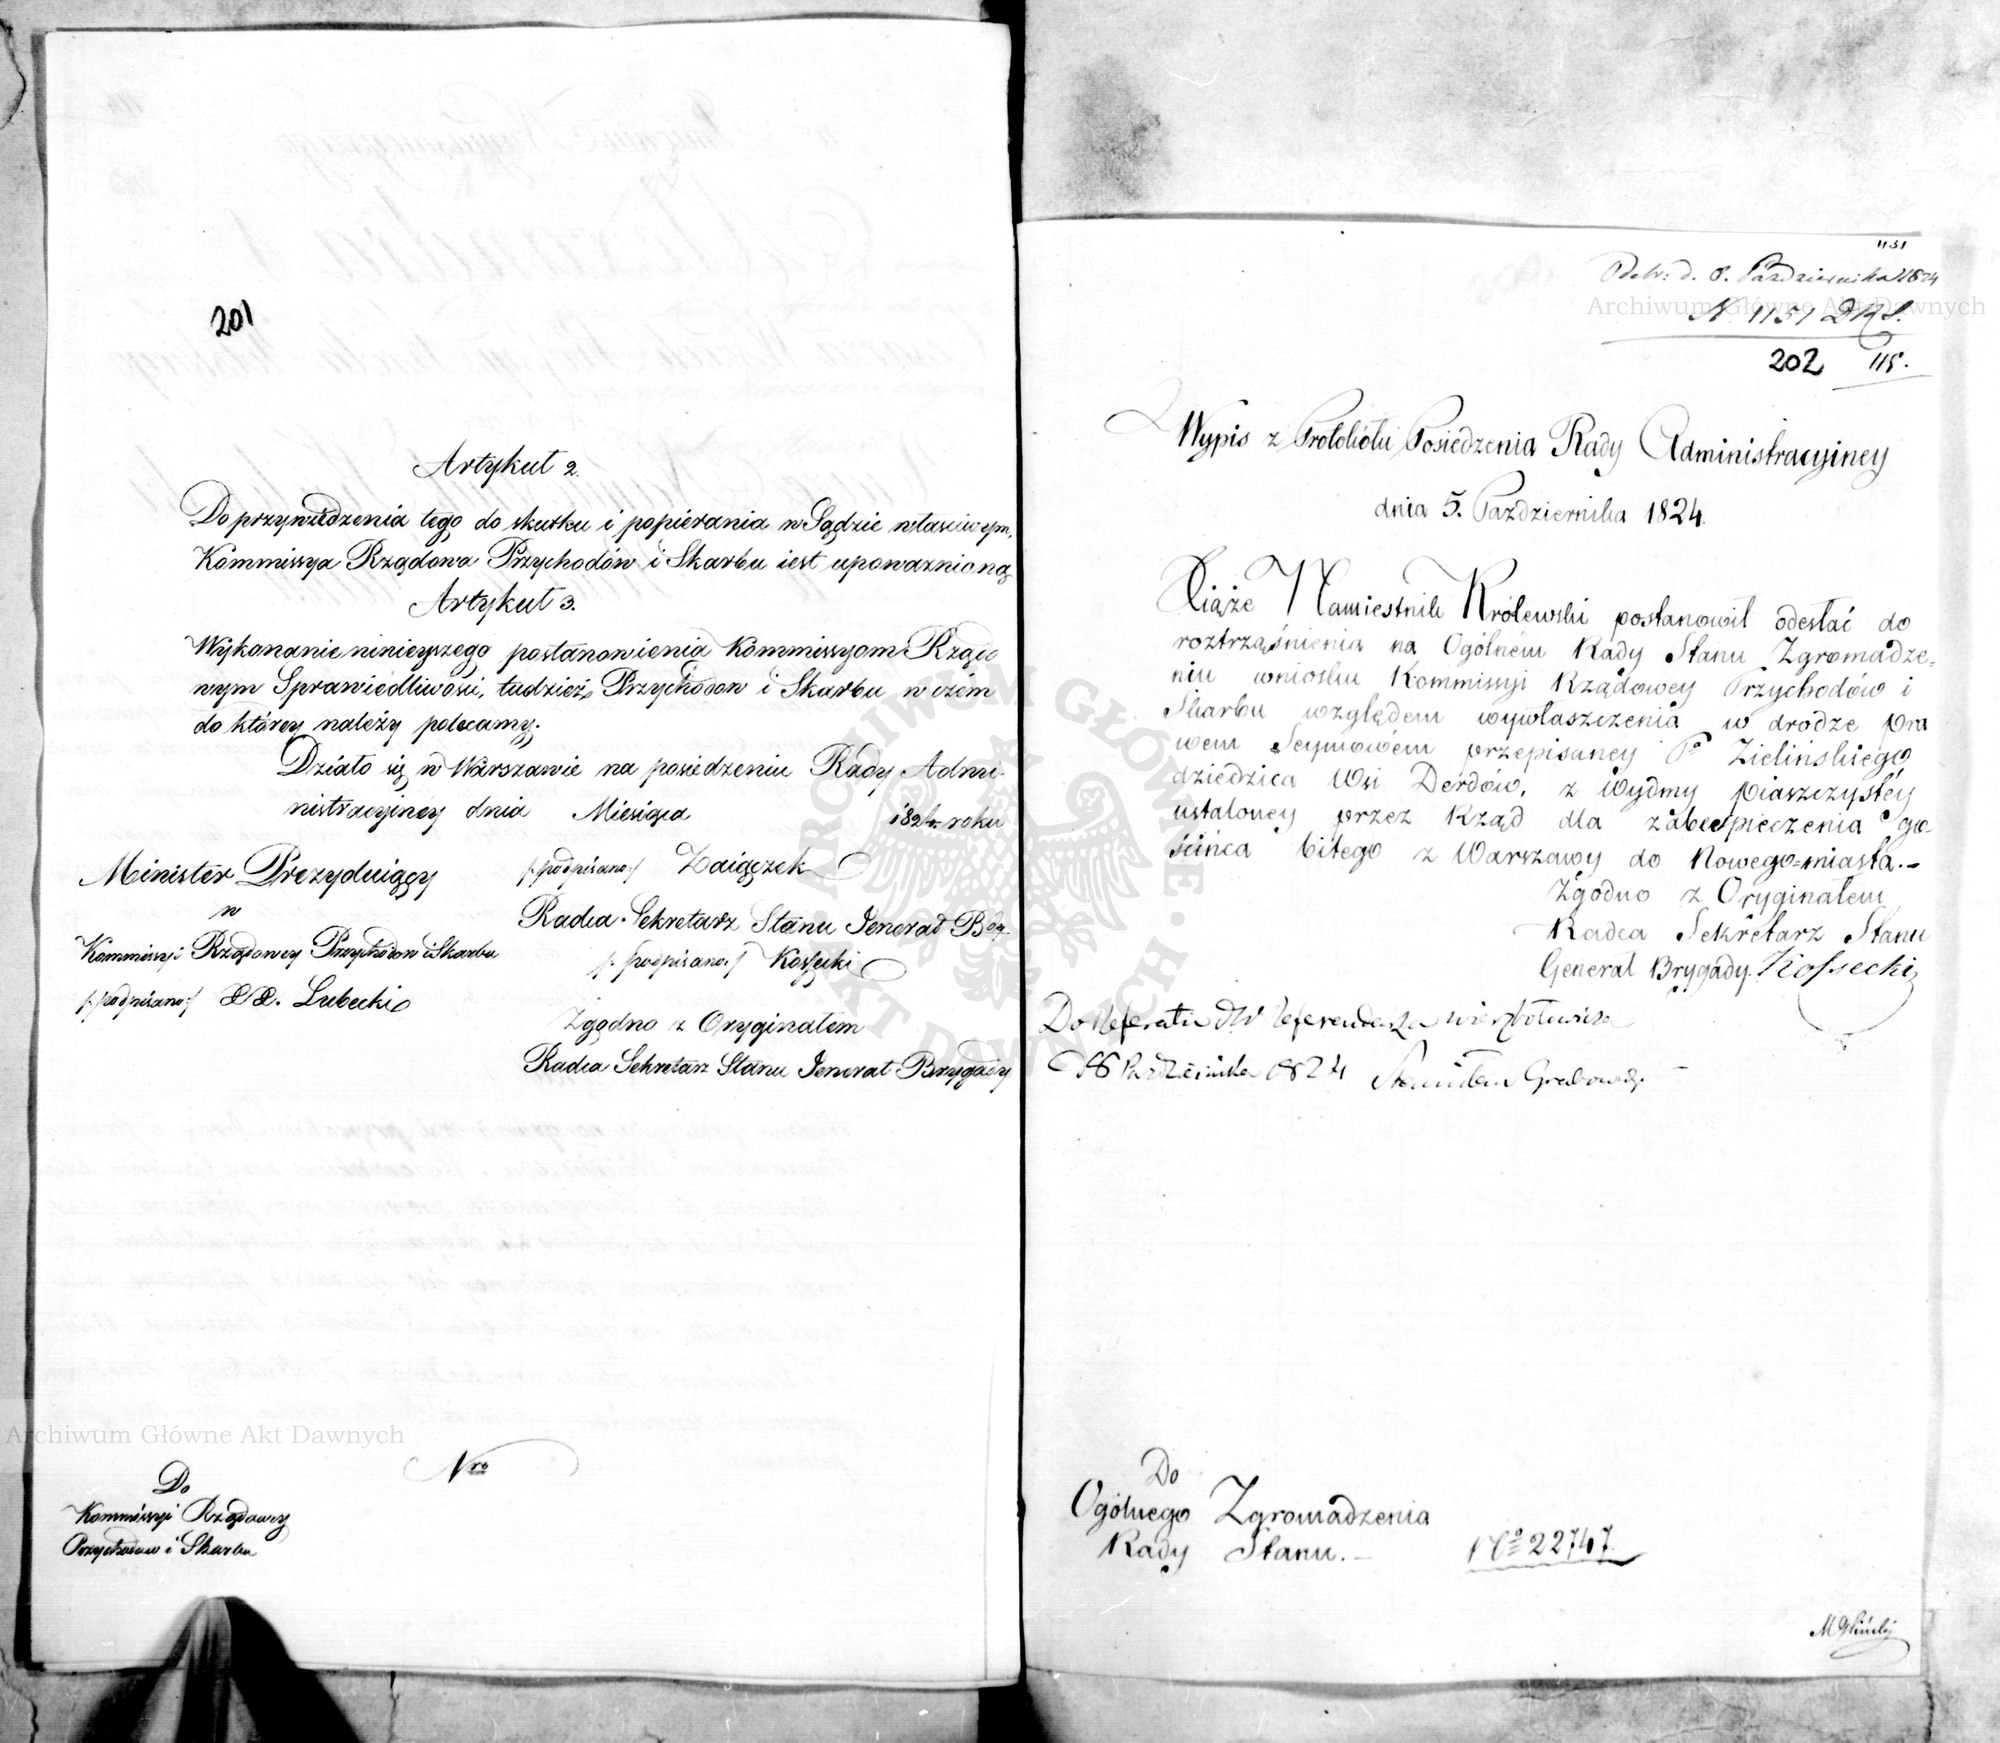 201
Artykuł 2.
Do przywiedzenia tego do skutku i popierania w Sądzie właściwym,
Kommissya Rządowa Przychodów i Skarbu iest upoważnioną
Artykuł 3.
Wykonanie ninieyszego postanowienia Kommissyom Rządo
wym Sprawiedliwości, tudzież Przychodow i Skarbu w czém
do którey należy polecamy.
Działo się w Warszawie na posiedzeniu Rady Admi-
nistracyiney dnia Miesiąca 1824 roku
Minister Prezyduiący
w
Kommissyi Rządowey Przychodow i Skarbu
/: podpisano :/ X. X. Lubecki
/: podpisano :/ Zaiączek
Radca Sekretarz Stanu Jenerał Bry
/: podpisano :/ Kossecki
Zgodno z Oryginałem
Radca Sekretarz Stanu Jenerał Brygady
Nro
Do
Kommissyi Rządowey
Przychodow i Skarbu
1151
Odebr: d. 8. Października 1824
N 1151 DRS.
202 115.
Wypis z Protokółu Posiedzenia Rady Administracyiney
dnia 5. Października 1824.
Xiąże Namiestnik Królewski postanowił odesłać do
roztrząśnienia na Ogólném Rady Stanu Zgromadze-
niu wniosku Kommissyi Rządowey Przychodów i
Skarbu względem wywłaszczenia w drodze pra
wem Seymowém przepisaney Pa Zielińskiego
dziedzica Wsi Derdów, z Wydmy piaszczystéy
ustaloney przez Rząd dla zabespieczenia go-
ścińca bitego z Warszawy do Nowego=miasta.-
Zgodno z Oryginałem
Radca Sekretarz Stanu
Generał Brygady Kossecki
Do Referatu JW Referendarza Wierzbołowicza
Października 1824 Stanisław Grabowski
Do
Ogólnego Zgromadzenia
Rady Stanu.-
No 22747.
Archiwum Główne Akt Dawnych
Archiwum Główne Akt Dawnych
ARCHIWUM GŁÓWNE · AKT DAWNYCH ·